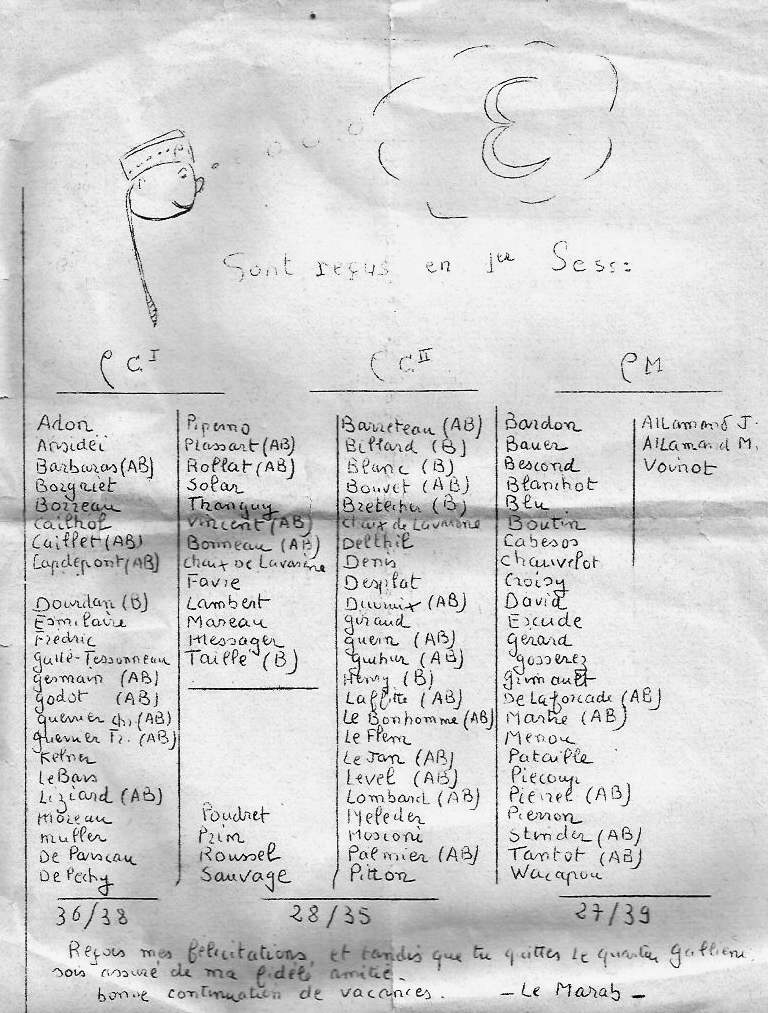 Sont reçus en 1ère Sess:
C I
Adon
Ansidei
Barbaras (AB)
Borgniet
Borreau
Cailhol
Caillet (AB)
Capdepont (AB)
Dourdan (B)
Esmilaire
Fredric
Gallé-Tessonneau
Germain (AB)
Godot (AB)
Guerrier Ch. (AB)
Guerrier Fr. (AB)
Kelner
Le Bars
Liziard (AB)
Moreau
Muller
De Parscau
De Pechy
Piperno
Plassart (AB)
Rollat (AB)
Solar
Thanguy
Vincent (AB)
Bonneau (AB)
Chaix de Lavarène
Favre
Lambert
Mareau
Messager
Taillé (B)
Poudret
Prim
Roussel
Sauvage
36/38
C II
Barreteau (AB)
Billard (B)
Blanc (B)
Bouvet (AB)
Bretecher (B)
Chaix de Lavarène
Delthil
Denis
Desplat
(AB)
Giraud
Guerin (AB)
(AB)
Henry (B)
Laffitte (AB)
Le Bonhomme (AB)
Le Flem
Le Jan (AB)
Level (AB)
Lombard (AB)
Meleder
Mosconi
Palmier (AB)
Pitton
28/35
PM
Bardon
Bauer
Bescond
Blanchot
Blu
Boutin
Cabesos
Chauvelot
Croisy
David
Escude
Gérard
Gosserez
Grimault
De Laforcade (AB)
Martre (AB)
Menou
Pataille
Piecoup
Pierrel (AB)
Pierron
Strider (AB)
Tantot (AB)
Wacapou
Allamand J.
Allamand M.
Voinot
27/39
Reçois mes félicitations, et tandis que tu quittes le quartier Gallieni,
sois assuré de ma fidèle amitié.
bonne continuation de vacances. - Le Marab -